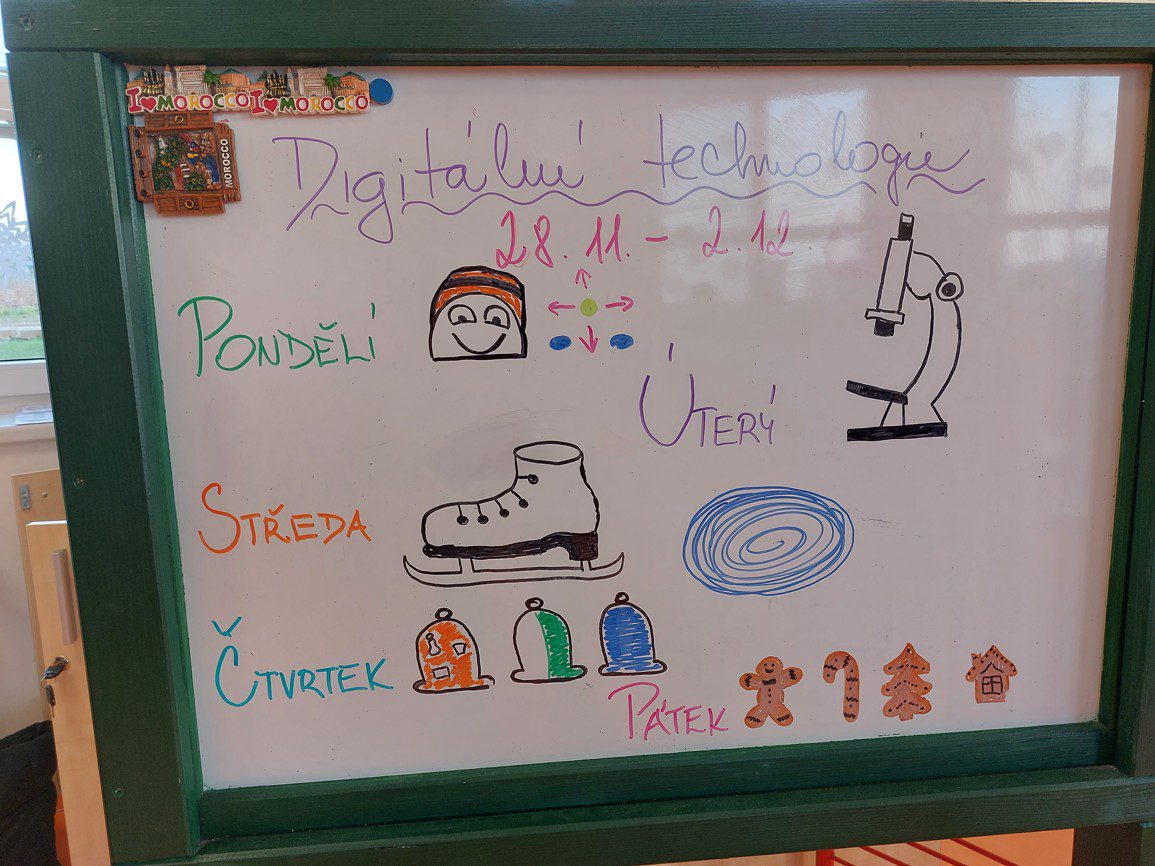 I ♥ MOROCCO I ♥ MOROCCO
MOROCCO
Digitální technologie
28.11. - 2.12.
PONDĚLÍ
ÚTERÝ
STŘEDA
ČTVRTEK
PÁTEK